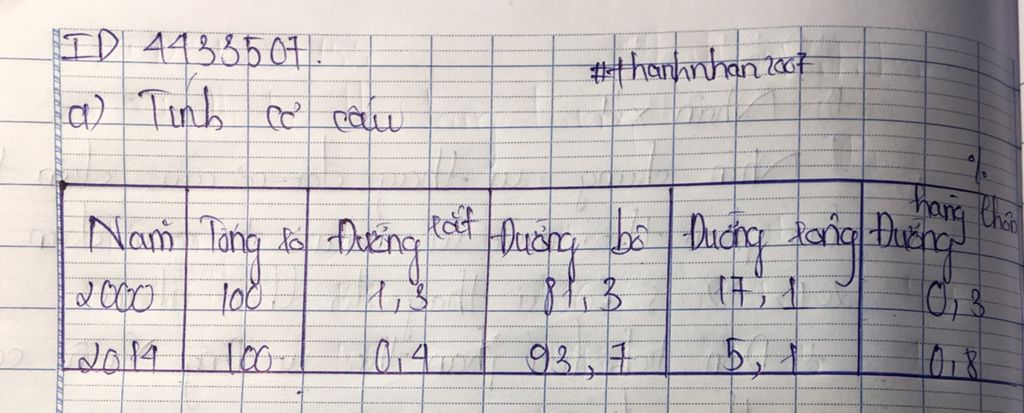 ID 4433507.
#thanhnhan2007
a) Tính cơ cấu
%
Năm Tổng số Đường sắt Đường bộ Đường sông Đường hàng không
2000 100 1,3 81,3 17,1 0,3
2014 100 0,4 93,7 5,1 0,8